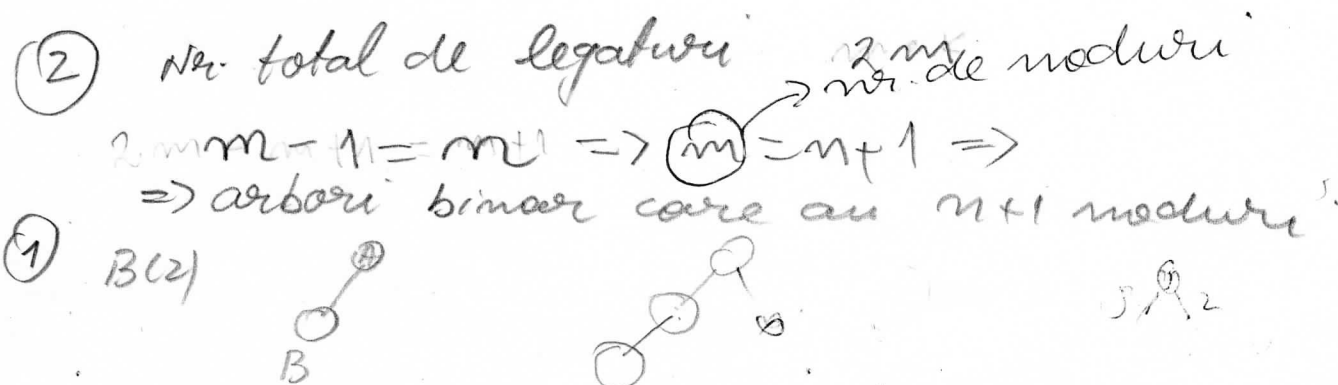 ② Nr. total de legaturi 2m
nr. de noduri
m - 1 = n => m = n + 1 =>
=> arbori binar care au n+1 noduri
① B(2) A
B